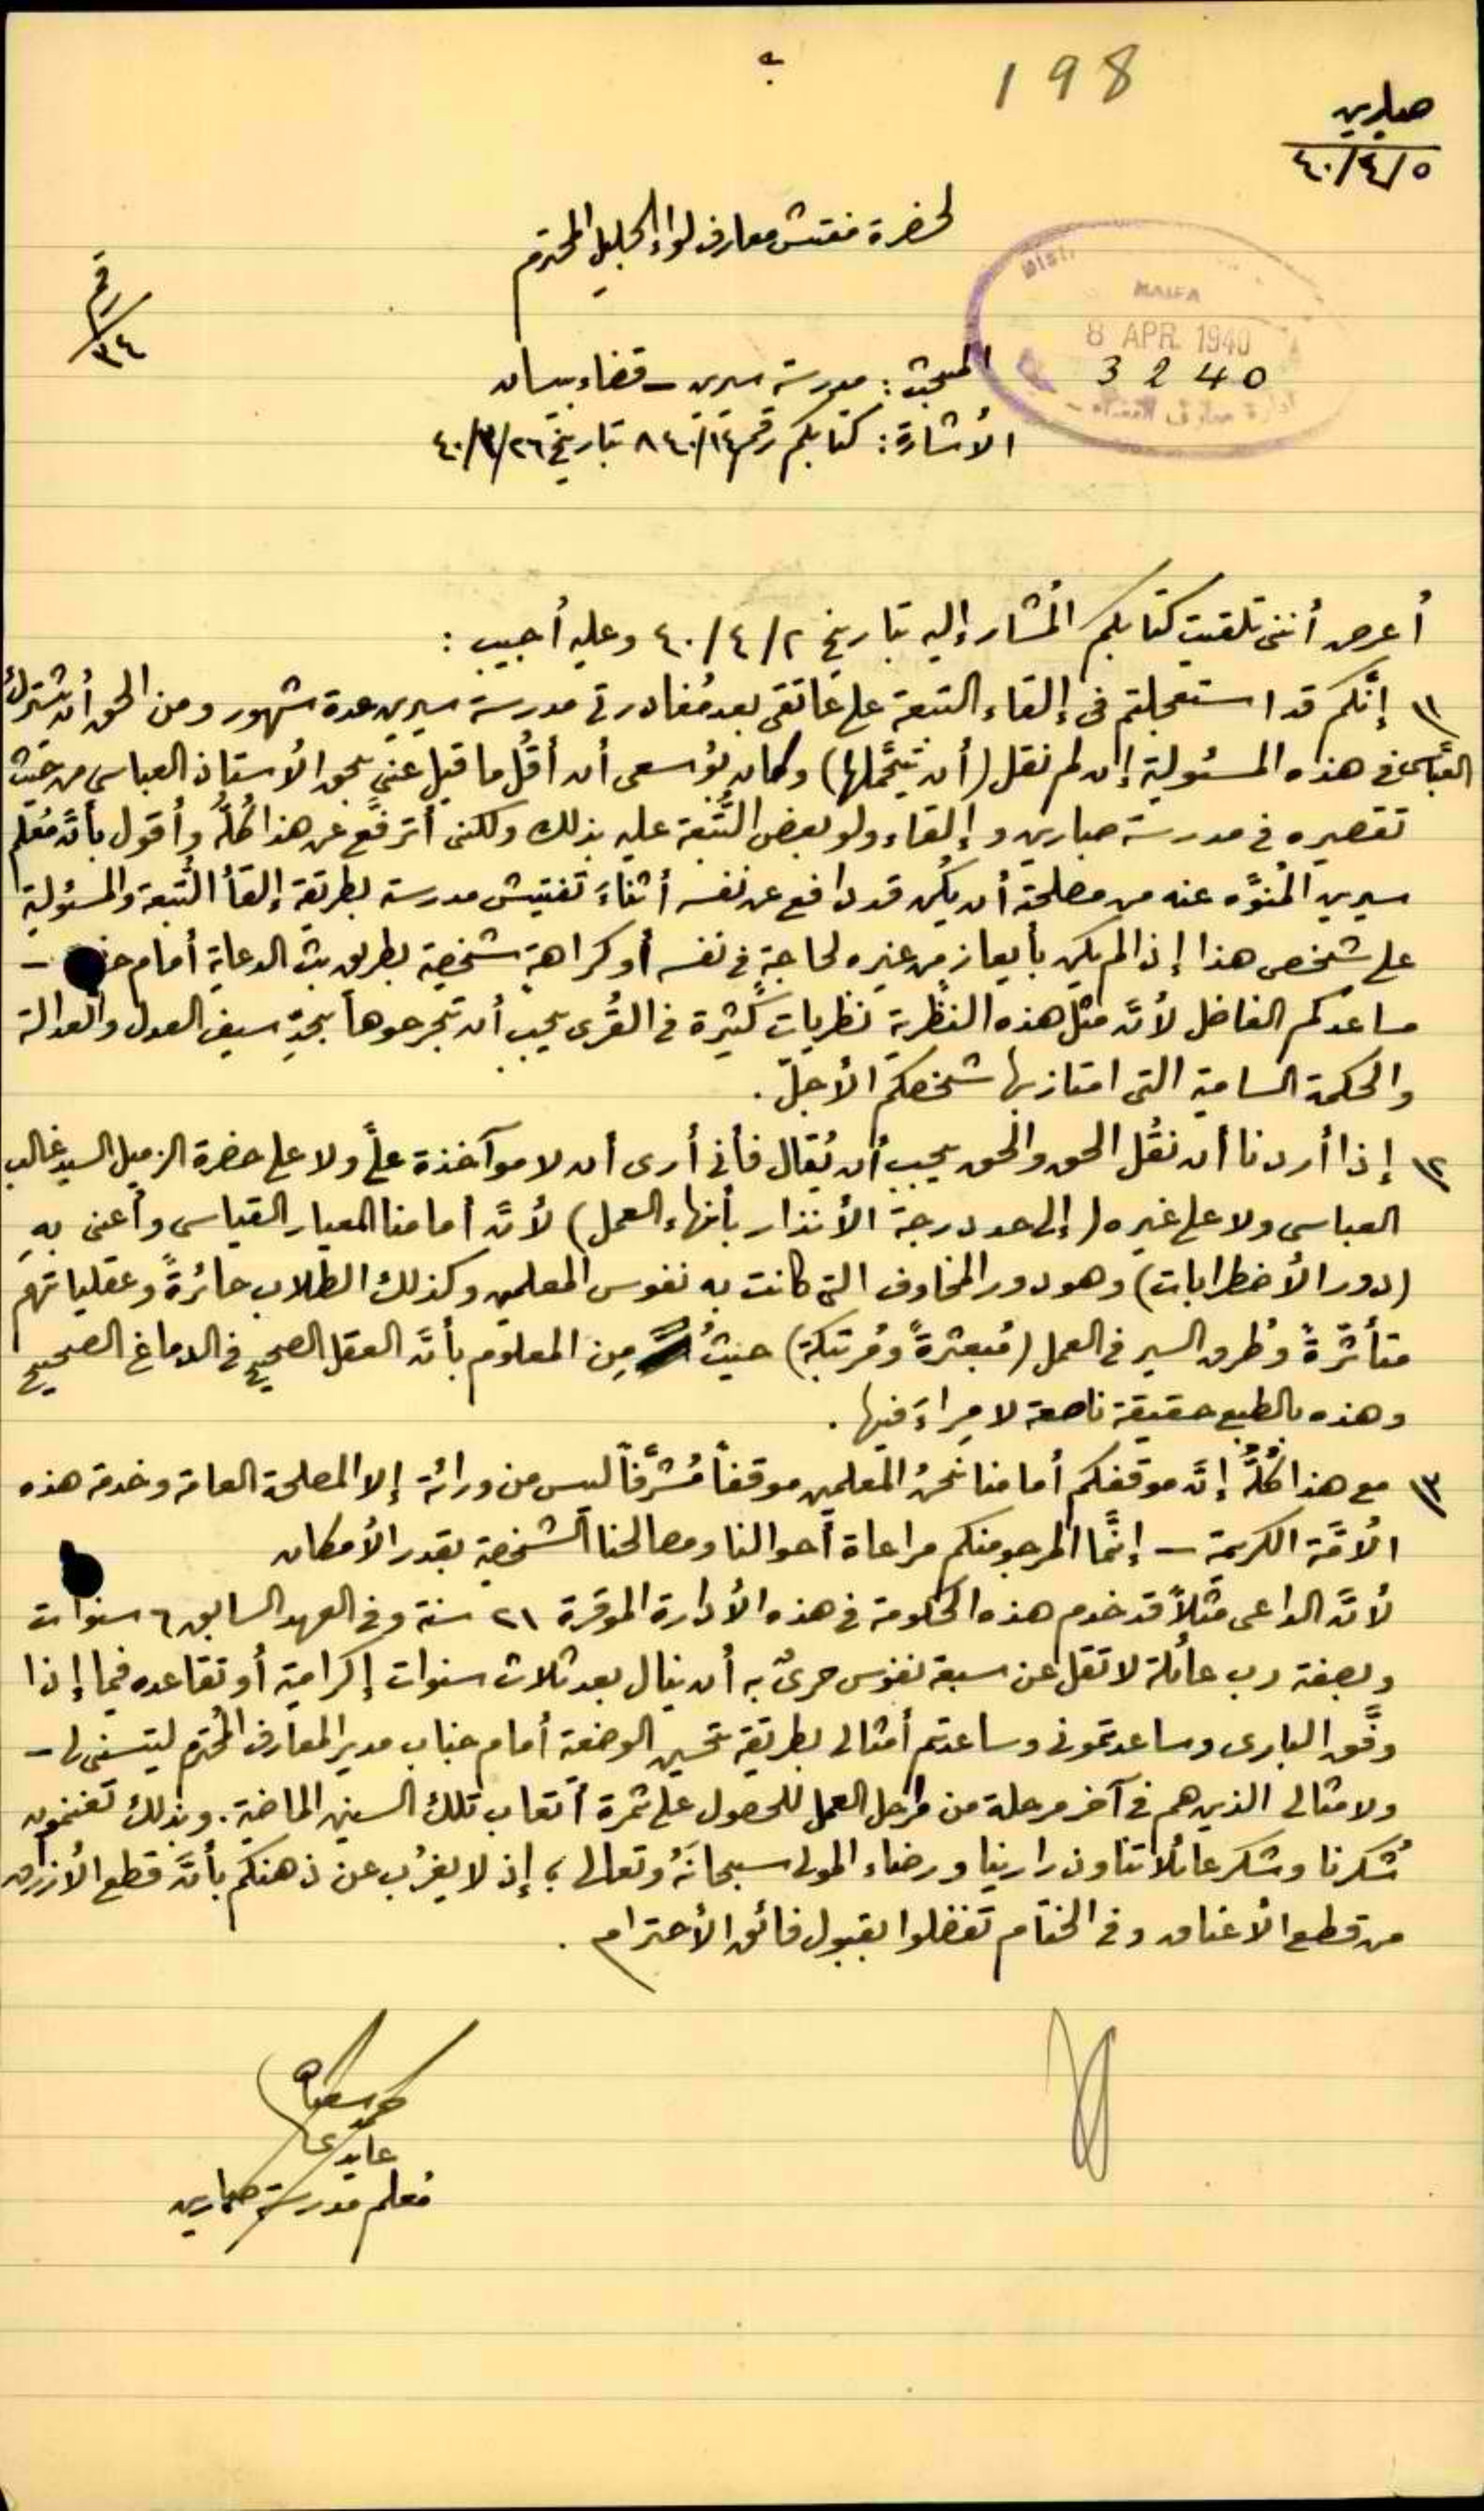 198
صبارين
٤٠/٤/٥
لحضرة مفتش معارف لواء الجليل المحترم
رقم
٣٤
HAIFA
8 APR. 1940
3240
المبحث: مدرسة سيرين - قضاء بيسان
الأشارة: كتابكم رقم ٨٤٠/١٤ بتاريخ ٤٠/٣/٢٦
أعرض أنني تلقيت كتابكم المُشار إليه بتاريخ ٤٠/٤/٢ وعليه أجيب :
١) إنَّكم قد استعجلتم في إلقاء التبعة على عاتقي بعد مُغادرتي مدرسة سيرين عدة شهور ومن الحق أن يشترك
العبَّاسي في هذه المسئولية إن لم نقل (أن يتحمَّلها) وكان بوُسعي أن أقُل ما قيل عني بحق الأستاذ العباسي من حيث
تقصيره في مدرسة صبارين وإلقاء ولو بعض التَّبعة عليه بذلك ولكني أترفَّع عن هذا كُلُّهُ وأقول بأنَّ مُعلم
سيرين المُنوَّه عنه من مصلحة أن يكُن قد دافع عن نفسه أثناءَ تفتيش مدرسة بطريقة إلقأ التَّبعة والمسئولية
على شخص هذا إذا لم يكن بأيعاز من غيره لحاجةٍ في نفسه أو كراهةٍ شخصية بطريق بث الدعاية أمام -
مساعدكم الفاضل لأنَّ مثل هذه النظرية نظريات كثيرة في القُرى يجب أن تجرحوها بحدِّ سيف العدل والعدالة
والحكمة السامية التي امتاز بها شخصكم الأجلّ .
٢) إذا أردنا أن نقُل الحق والحق يجب أن يُقال فأني أرى أن لا موآخذة علىَّ ولا على حضرة الزميل السيد غالب
العباسي ولا على غيره (إلى حد درجة الأنذار بأنهاء العمل) لأنَّ أمامنا المعيار القياسي وأعني بهِ
(دور الأضطرابات) وهو دور المخاوف التي كانت به نفوس المعلمين وكذلك الطلاب حائرةً وعقلياتهم
متأثرةً وطُرق السير في العمل (مُبعثرةً ومُرتبكة) حيثُ مِن المعلوم بأنَّ العقل الصحيح في الدماغ الصحيح
وهذه بالطبع حقيقة ناصعة لا مِراءَ فيها .
٣) مع هذا كُلُّهُ إنَّ موقفكم أمامنا نحنُ المعلمين موقفاً مُشرَّفاً ليس من ورائه إلا المصلحة العامة وخدمة هذه
الأُمَّة الكريمة - إنَّما المرجو منكم مراعاة أحوالنا ومصالحنا الشخصية بقدر الأمكان
لأنَّ الداعي مثلاً قد خدم هذه الحكومة في هذه الأدارة الموقرة ٢١ سنة وفي العهد السابق ٦ سنوات
وبصفة رب عائلة لا تقل عن سبعة نفوس حرىٌ به أن ينال بعد ثلاث سنوات إكرامية أو تقاعده فيما إذا
وفَّق الباري وساعدتموني وساعدتم أمثالي بطريقة تحسين الوضعية أمام جناب مدير المعارف المُحترم ليتسنى لي -
ولامثالي الذين هم في آخر مرحلة من مراحل العمل للحصول على ثمرة أتعاب تلك السنين الماضية. وبذلك تغنمون
شُكرنا وشكر عائلاتنا ورضاء المولى سبحانَهُ وتعالى ؛ إذ لا يغرُب عن ذهنكم بأنَّ قطع الأرزاق
من قطع الأعناق وفي الختام تفضلوا بقبول فائق الأحترام .
معلم مدرسة صبارين